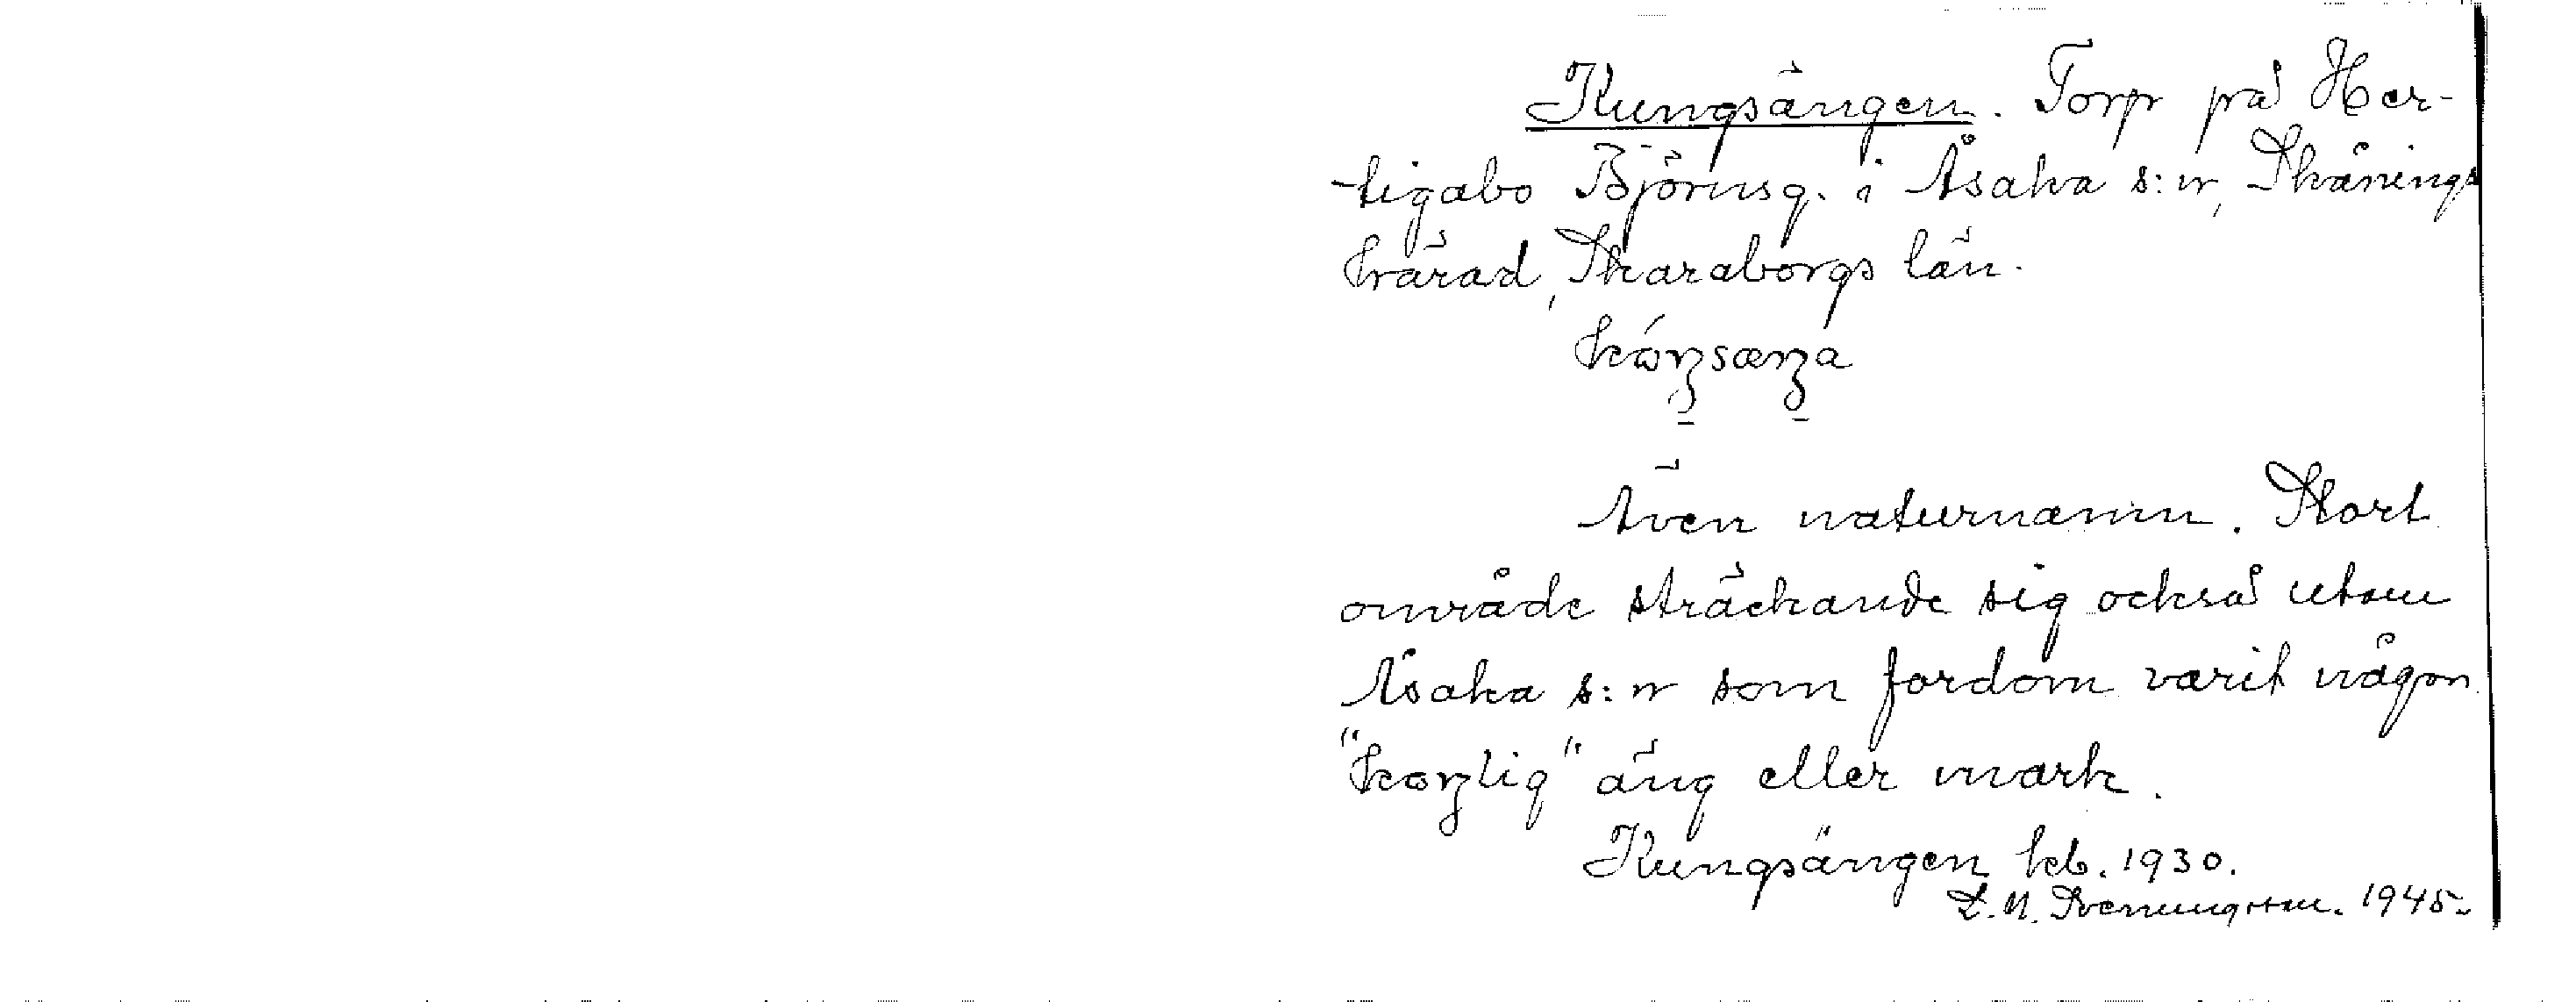 Kungsängen. Torp på Her-
tigabo Björnsg. i Åsaka s:n, Skånings
härad, Skaraborgs län.
kóŋsæŋa
Även naturnamn. Stort
område sträckande sig också utom
Åsaka s:n som fordom varit någon
"koŋlig" äng eller mark.
Kungsängen kb. 1930.
L.M. Svenungsson. 1945.